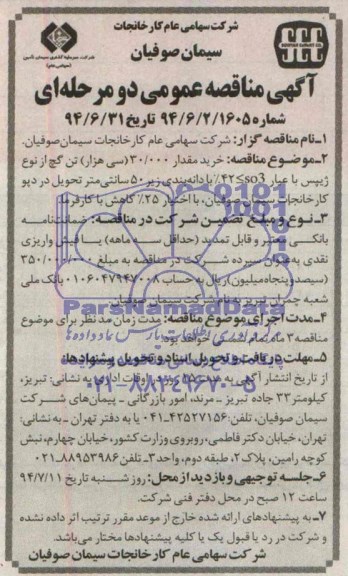 شرکت سهامی عام کارخانجات
سیمان صوفیان
SCC
شرکت سرمایه گذاری سیمان تأمین
(سهامی عام)
آگهی مناقصه عمومی دو مرحله‌ای
شماره ۹۴/۶/۲/۱۶۰۵ تاریخ ۹۴/۶/۳۱
۱-نام مناقصه گزار: شرکت سهامی عام کارخانجات سیمان‌صوفیان.
۲-موضوع مناقصه: خرید مقدار ۳۰/۰۰۰(سی هزار) تن گچ از نوع
ژیپس با عیار ۴۲≤so3٪ با دانه‌بندی زیر ۵۰ سانتی‌متر تحویل در دپو
کارخانجات سیمان صوفیان، با اختیار ۲۵٪ کاهش با کارفرما.
۳-نوع و مبلغ تضمین شرکت در مناقصه: ضمانتنامه
بانکی معتبر و قابل تمدید (حداقل سه ماهه) یا فیش واریزی
نقدی به عنوان سپرده شرکت در مناقصه به مبلغ ۳۵۰/۰۰۰/۰۰۰
(سیصدوپنجاه‌میلیون) ریال به حساب ۰۱۰۶۰۴۷۹۴۷۰۰۸ بانک ملی
شعبه چمران تبریز به نام شرکت سیمان صوفیان
۴-مدت اجرای موضوع مناقصه: مدت زمان مد نظر برای موضوع
مناقصه ۳ ماه تمام شمسی خواهد بود.
۵-مهلت دریافت و تحویل اسناد و تحویل پیشنهادها:
از تاریخ انتشار آگهی به مدت ۲۵ روز در اوقات اداری به نشانی: تبریز،
کیلومتر ۳۳ جاده تبریز ـ مرند، امور بازرگانی ـ پیمان‌های شرکت
سیمان صوفیان، تلفن:۴۲۵۲۷۱۵۶-۰۴۱ یا به دفتر تهران ـ به نشانی:
تهران، خیابان دکتر فاطمی، روبروی وزارت کشور، خیابان چهارم، نبش
کوچه رامین، پلاک ۲، طبقه دوم، واحد ۳ـ تلفن ۸۸۹۵۳۹۸۶-۰۲۱
۶-جلسه توجیهی و بازدید از محل: روز شنبه تاریخ ۹۴/۷/۱۱
ساعت ۱۲ صبح در محل دفتر فنی شرکت.
۷-به پیشنهادهای ارائه شده خارج از موعد مقرر ترتیب اثر داده نشده
و شرکت در رد یا قبول یک یا کلیه پیشنهادها مختار می‌باشد.
شرکت سهامی عام کارخانجات سیمان صوفیان
ParsNamadData
۰۲۱-۸۸۳۴۹۶۷۰-۵